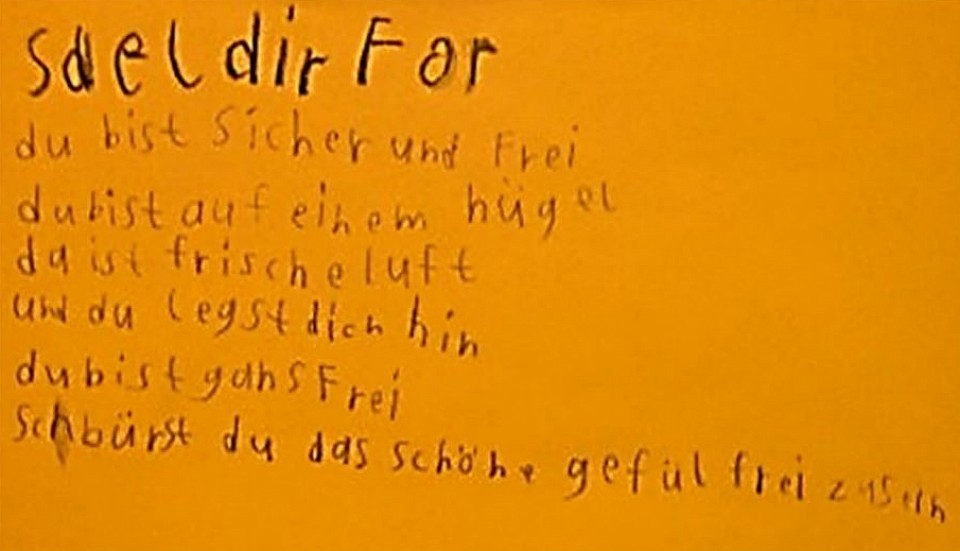 sdel dir For
du bist Sicher und Frei
du bist auf einem hügel
da ist frische luft
und du legst dich hin
du bist gans Frei
schbürst du das schöne gefül frei zu sein